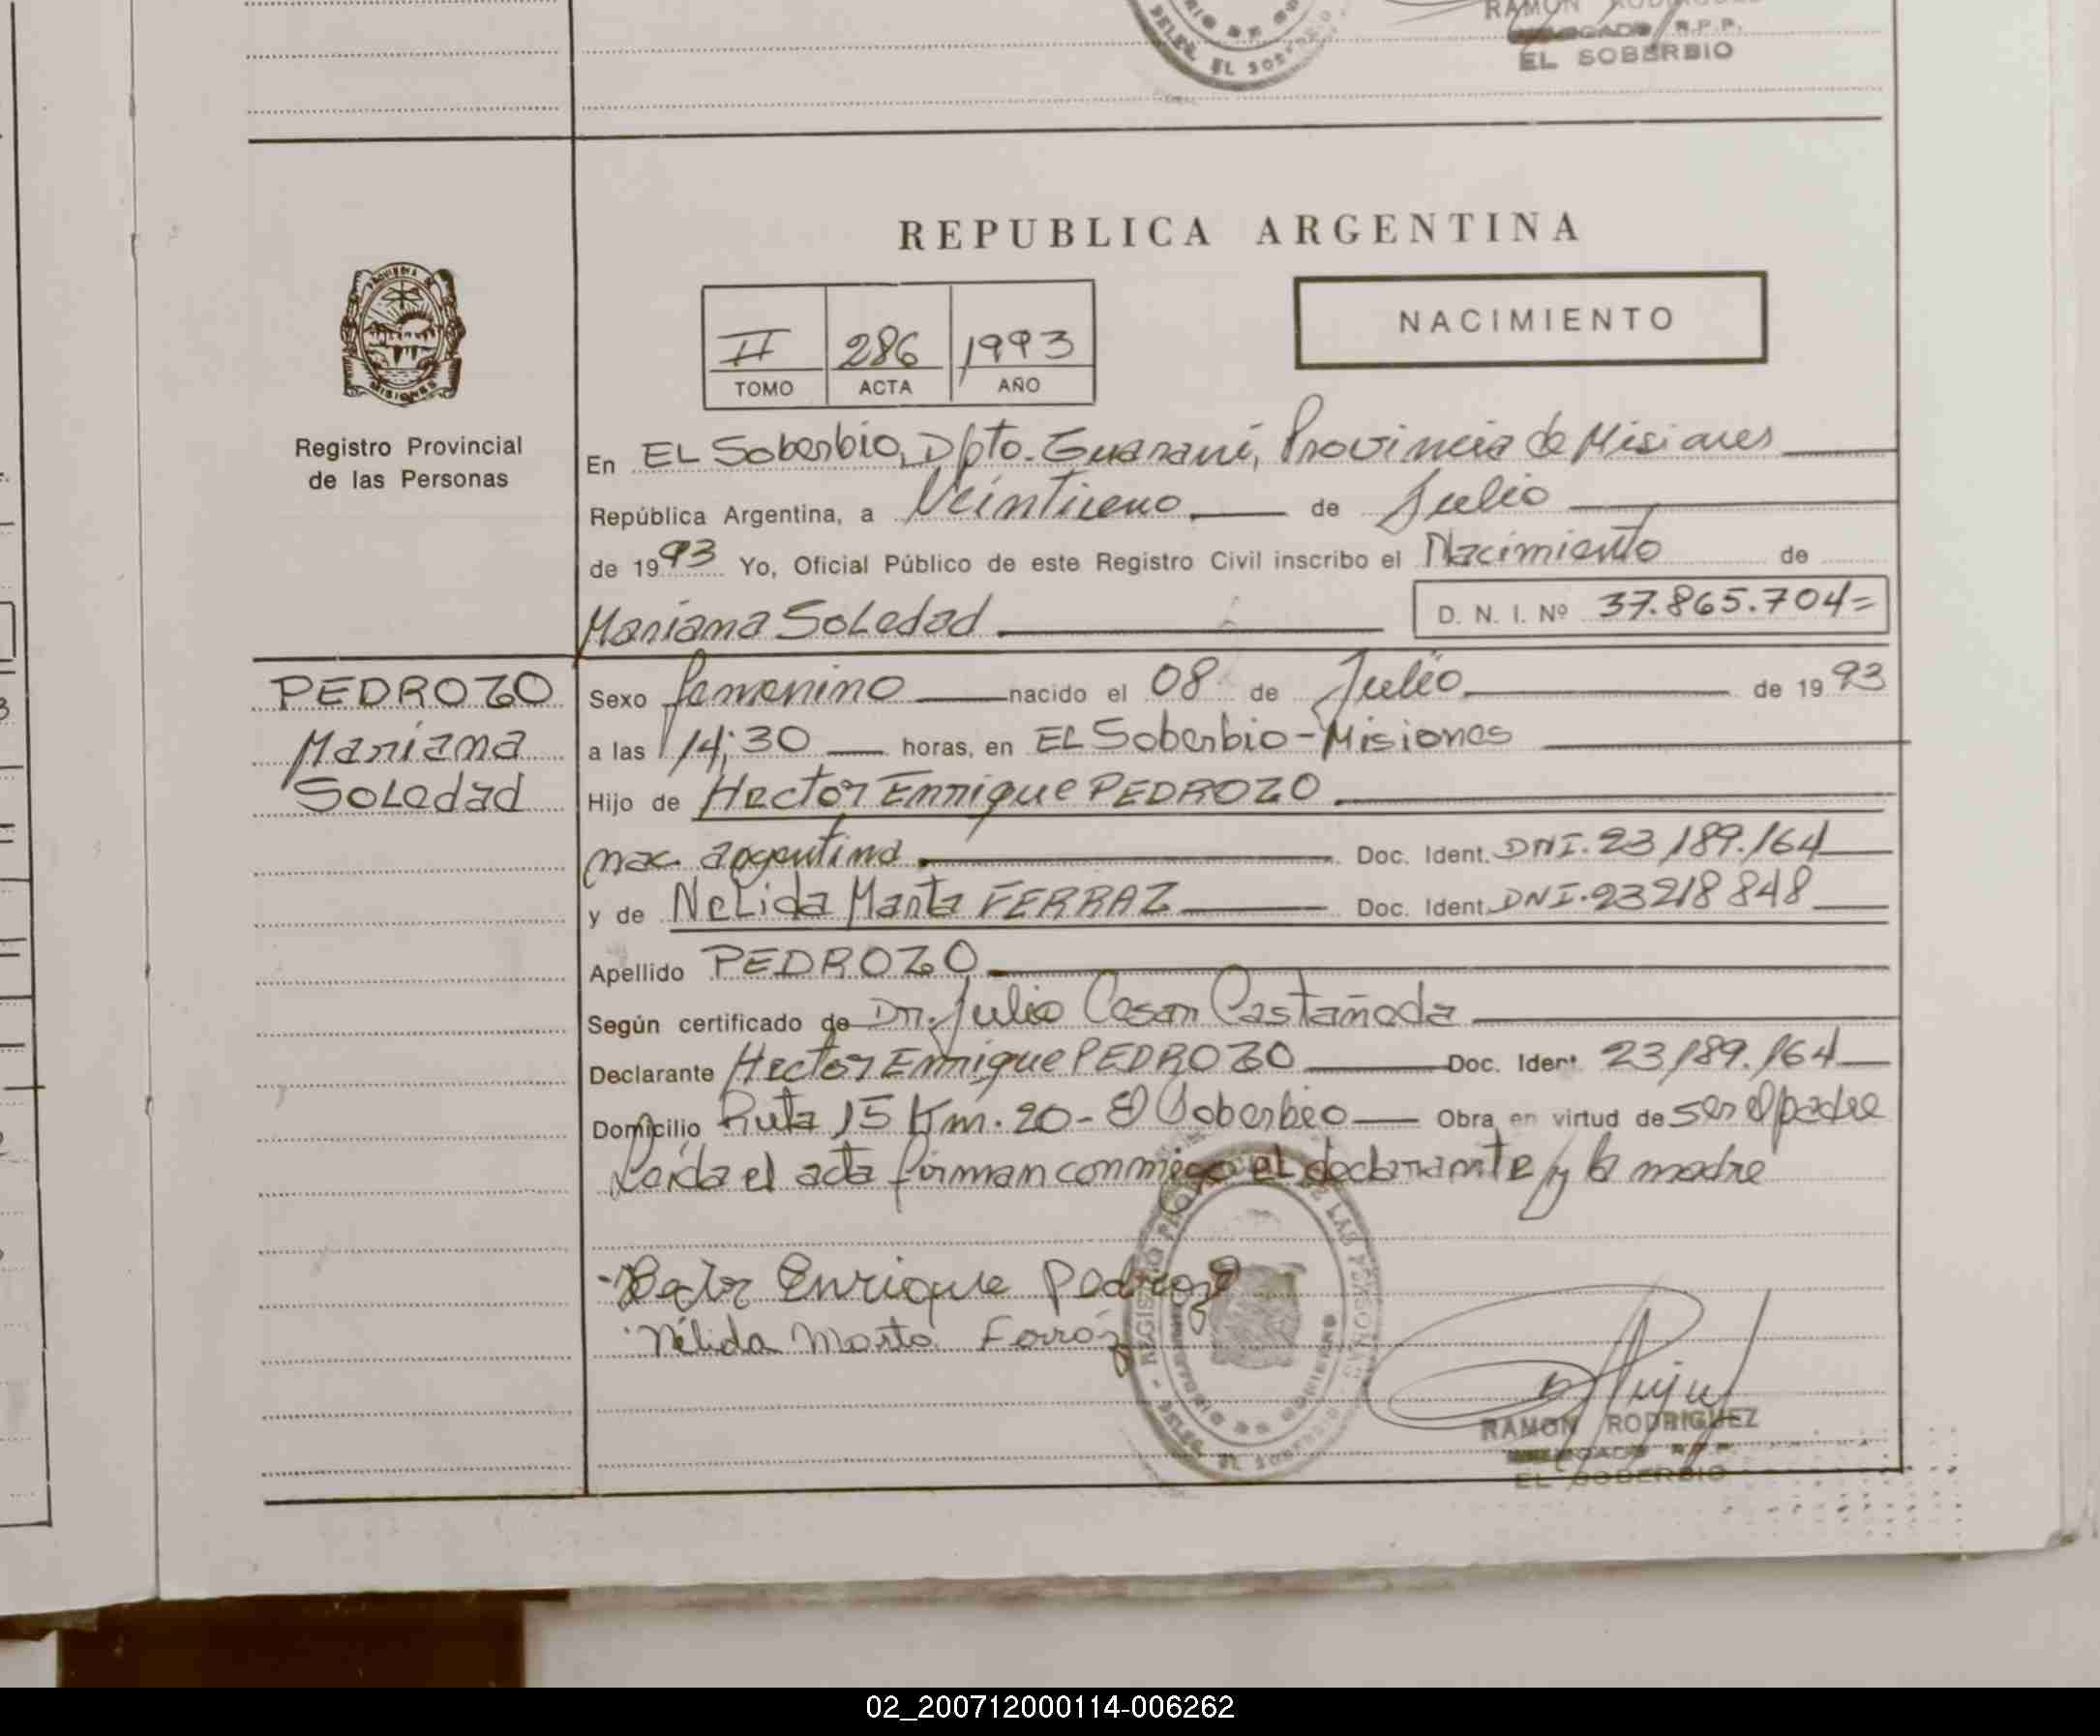 RAMON RODRIGUEZ
R.P.P.
EL SOBERBIO
REPUBLICA ARGENTINA
NACIMIENTO
II 286 1993
TOMO ACTA AÑO
Registro Provincial
de las Personas
En EL Soberbio, Dpto. Guaraní, Provincia de Misiones
República Argentina, a Veintiuno de Julio
de 1993 Yo, Oficial Público de este Registro Civil inscribo el Nacimiento de
Mariana Soledad D. N. I. Nº 37.865.704=
PEDROZO
Mariana
Soledad
Sexo femenino nacido el 08 de Julio de 1993
a las 14:30 horas, en EL Soberbio - Misiones
Hijo de Hector Enrique PEDROZO
nac. argentina Doc. Ident. DNI. 23.189.164
y de NeLida Marta FERRAZ Doc. Ident. DNI. 23218848
Apellido PEDROZO
Según certificado de Dr. Julio Cesar Castañeda
Declarante Hector Enrique PEDROZO Doc. Ident. 23.189.164
Domicilio Ruta 15 Km. 20 - El Soberbio Obra en virtud de ser el padre
Leída el acta firman conmigo el declarante y la madre
Enrique Pedrozo
Nélida Marta Ferráz
REGISTRO PROVINCIAL DE LAS PERSONAS
RAMON RODRIGUEZ
R.P.P.
EL SOBERBIO
02_200712000114-006262